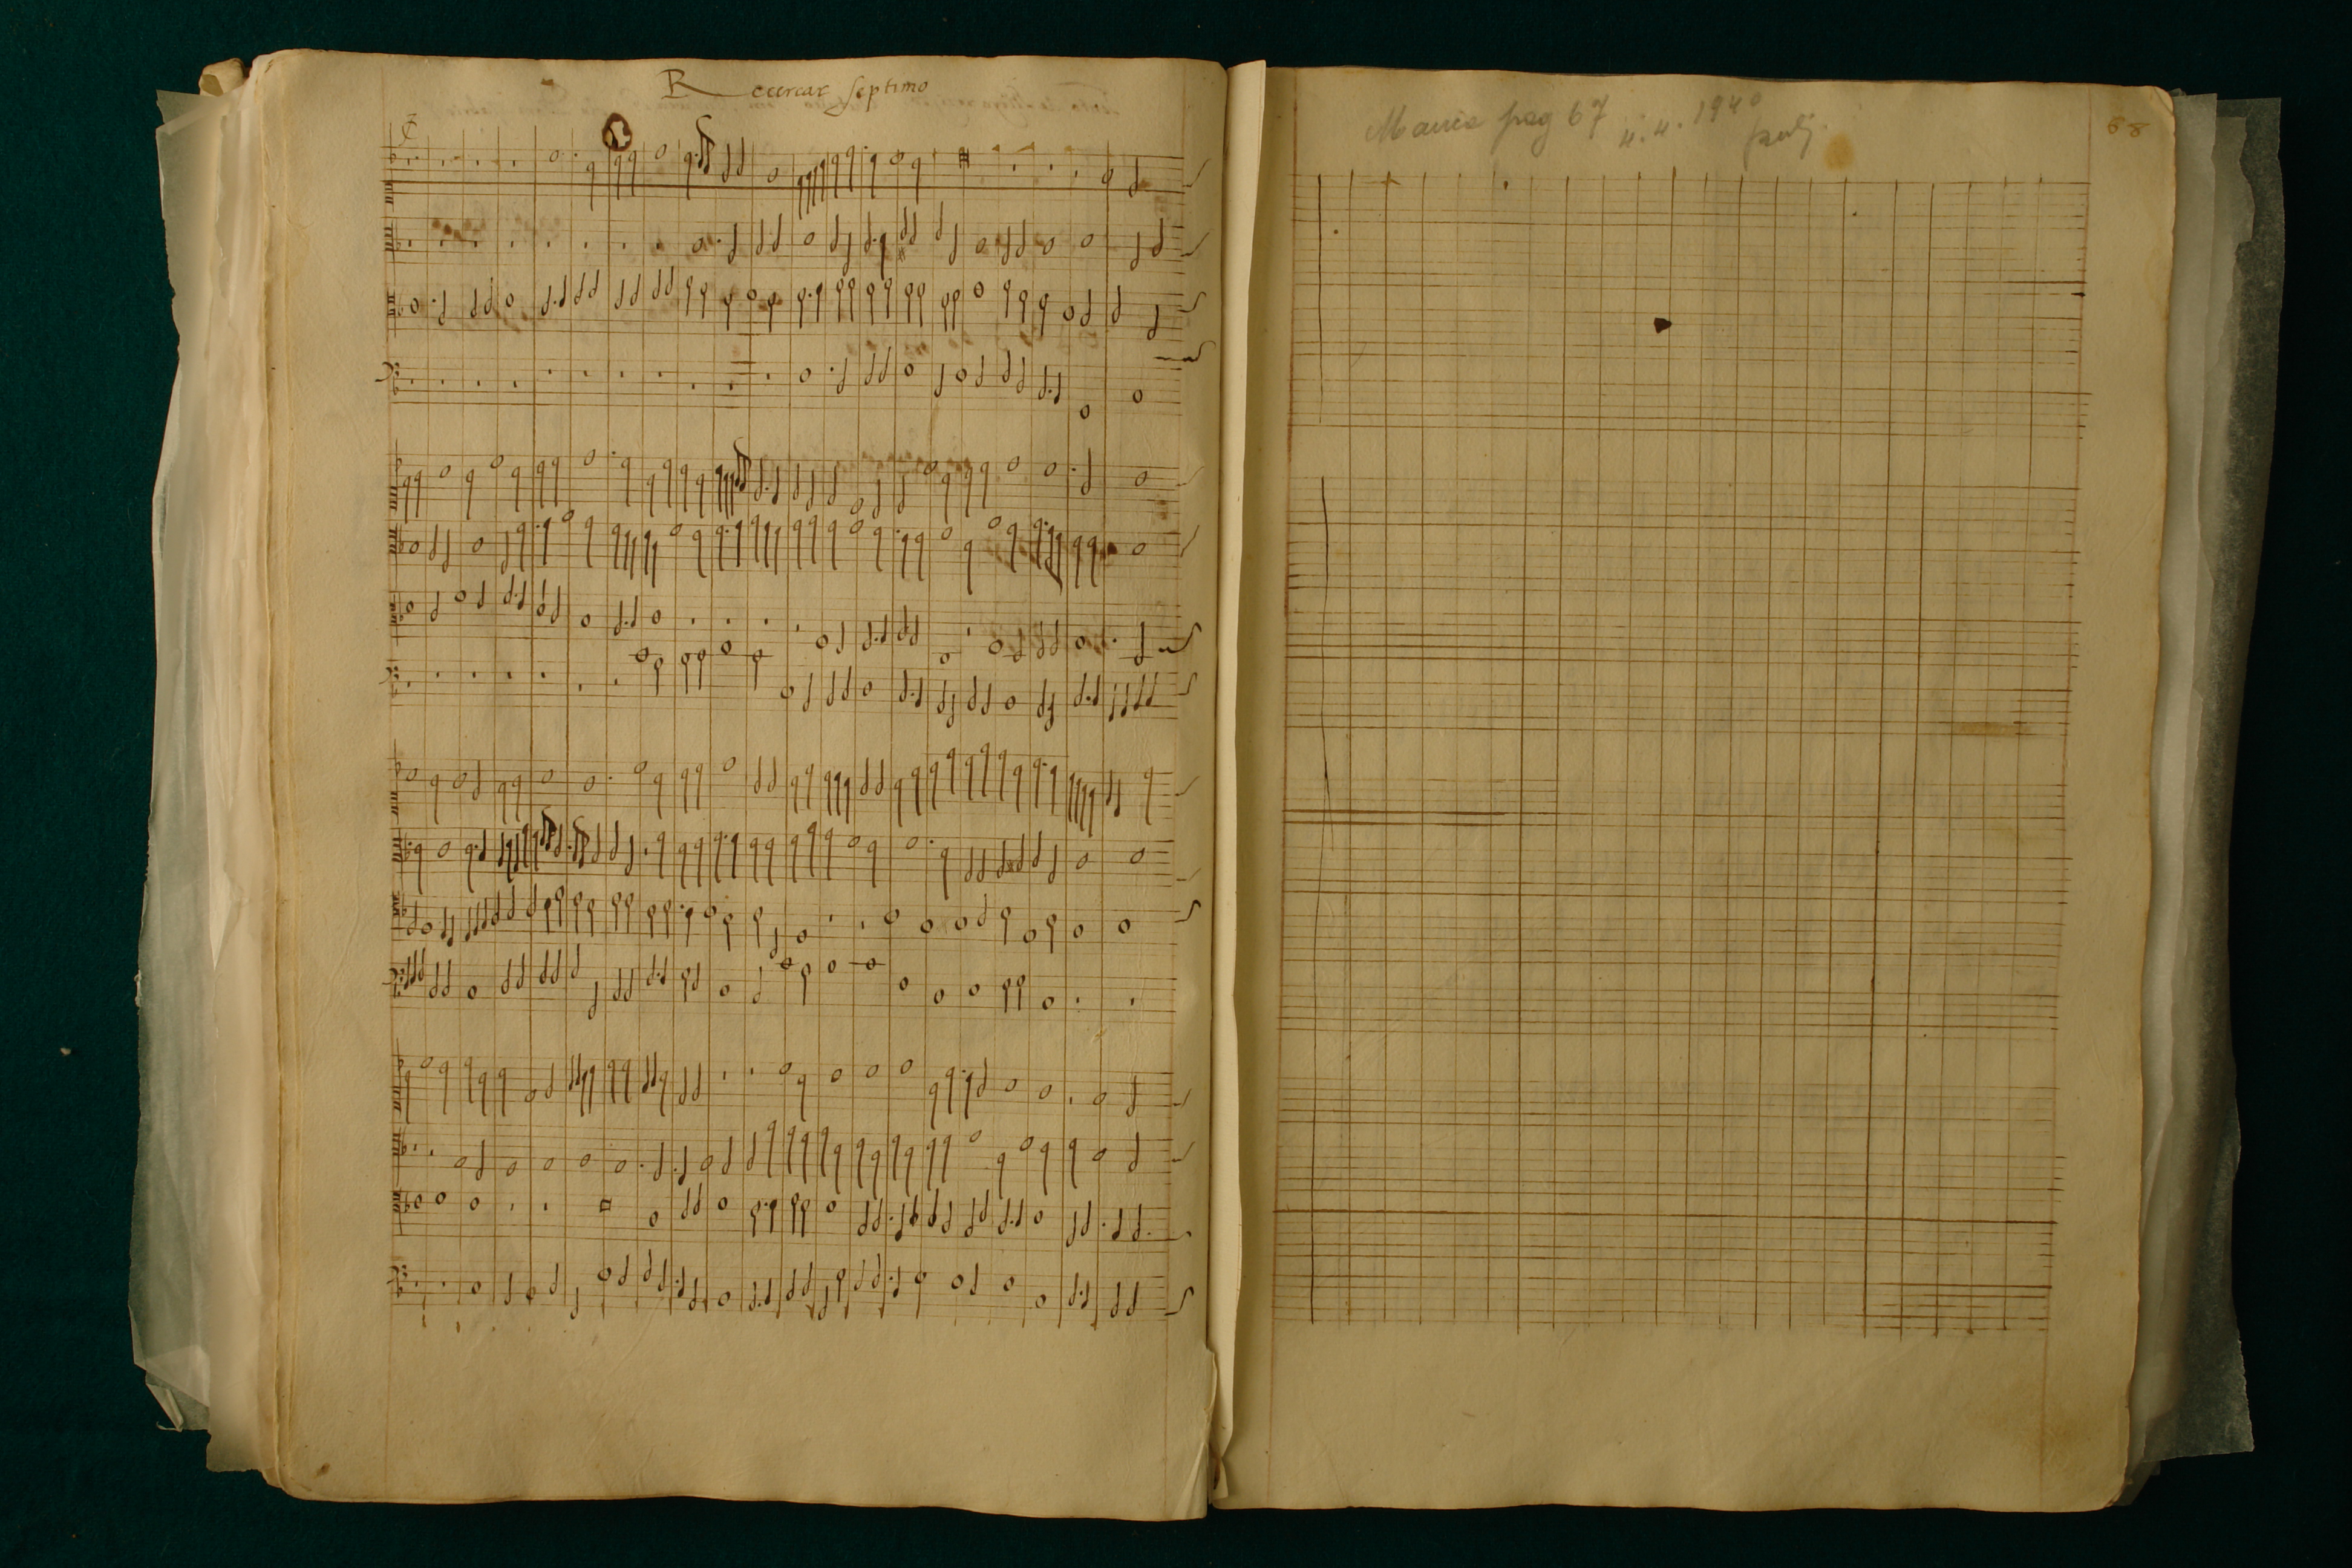 Recercar septimo
Manca pag 67
4. 4. 1940
68